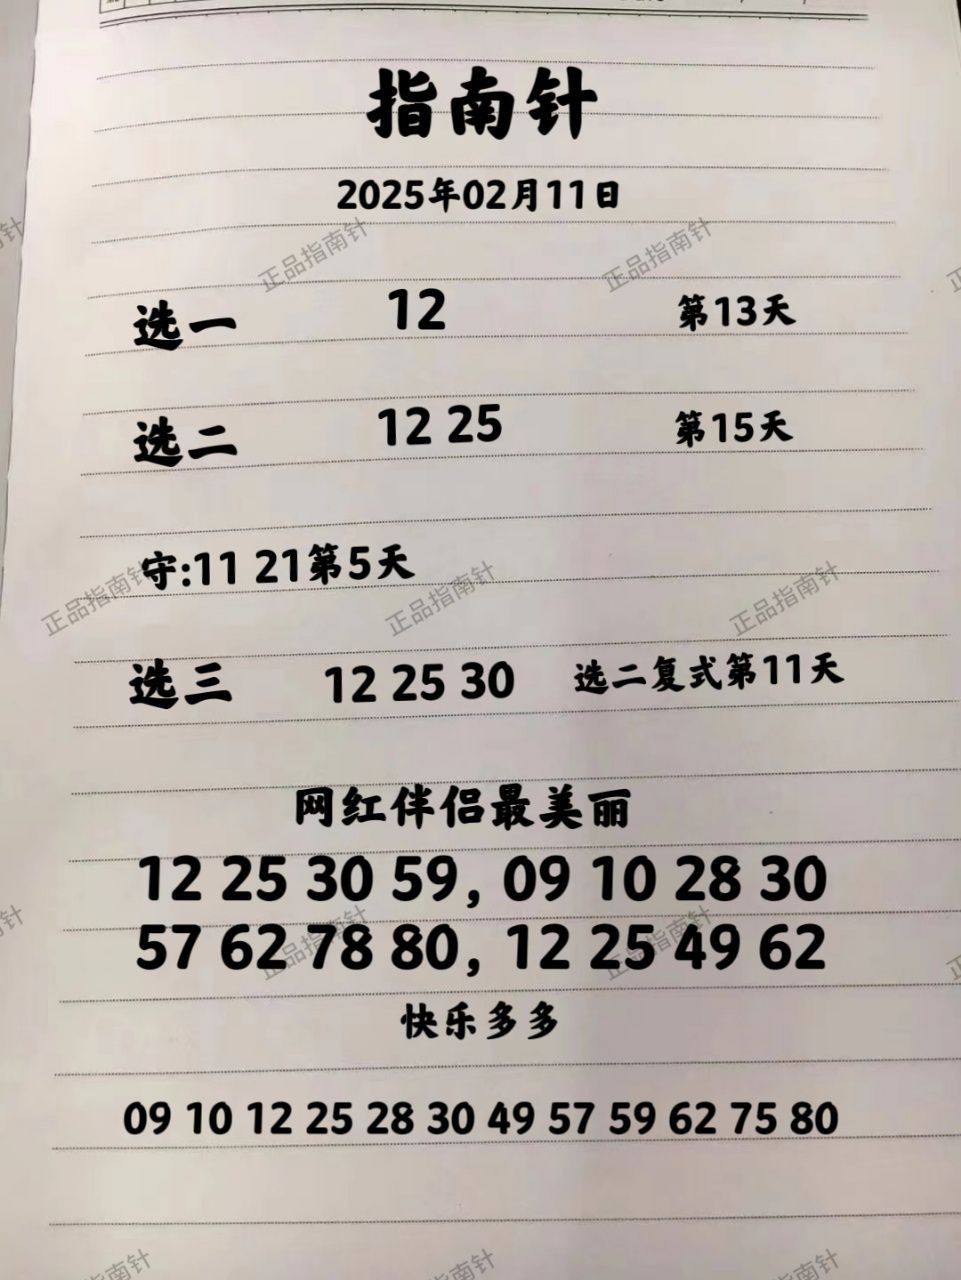 指南针
2025年02月11日
选一 12 第13天
选二 12 25 第15天
守:11 21第5天
选三 12 25 30 选二复式第11天
网红伴侣最美丽
12 25 30 59, 09 10 28 30
57 62 78 80, 12 25 49 62
快乐多多
09 10 12 25 28 30 49 57 59 62 75 80
正品指南针
正品指南针
正品指南针
正品指南针
正品指南针
正品指南针
正品指南针